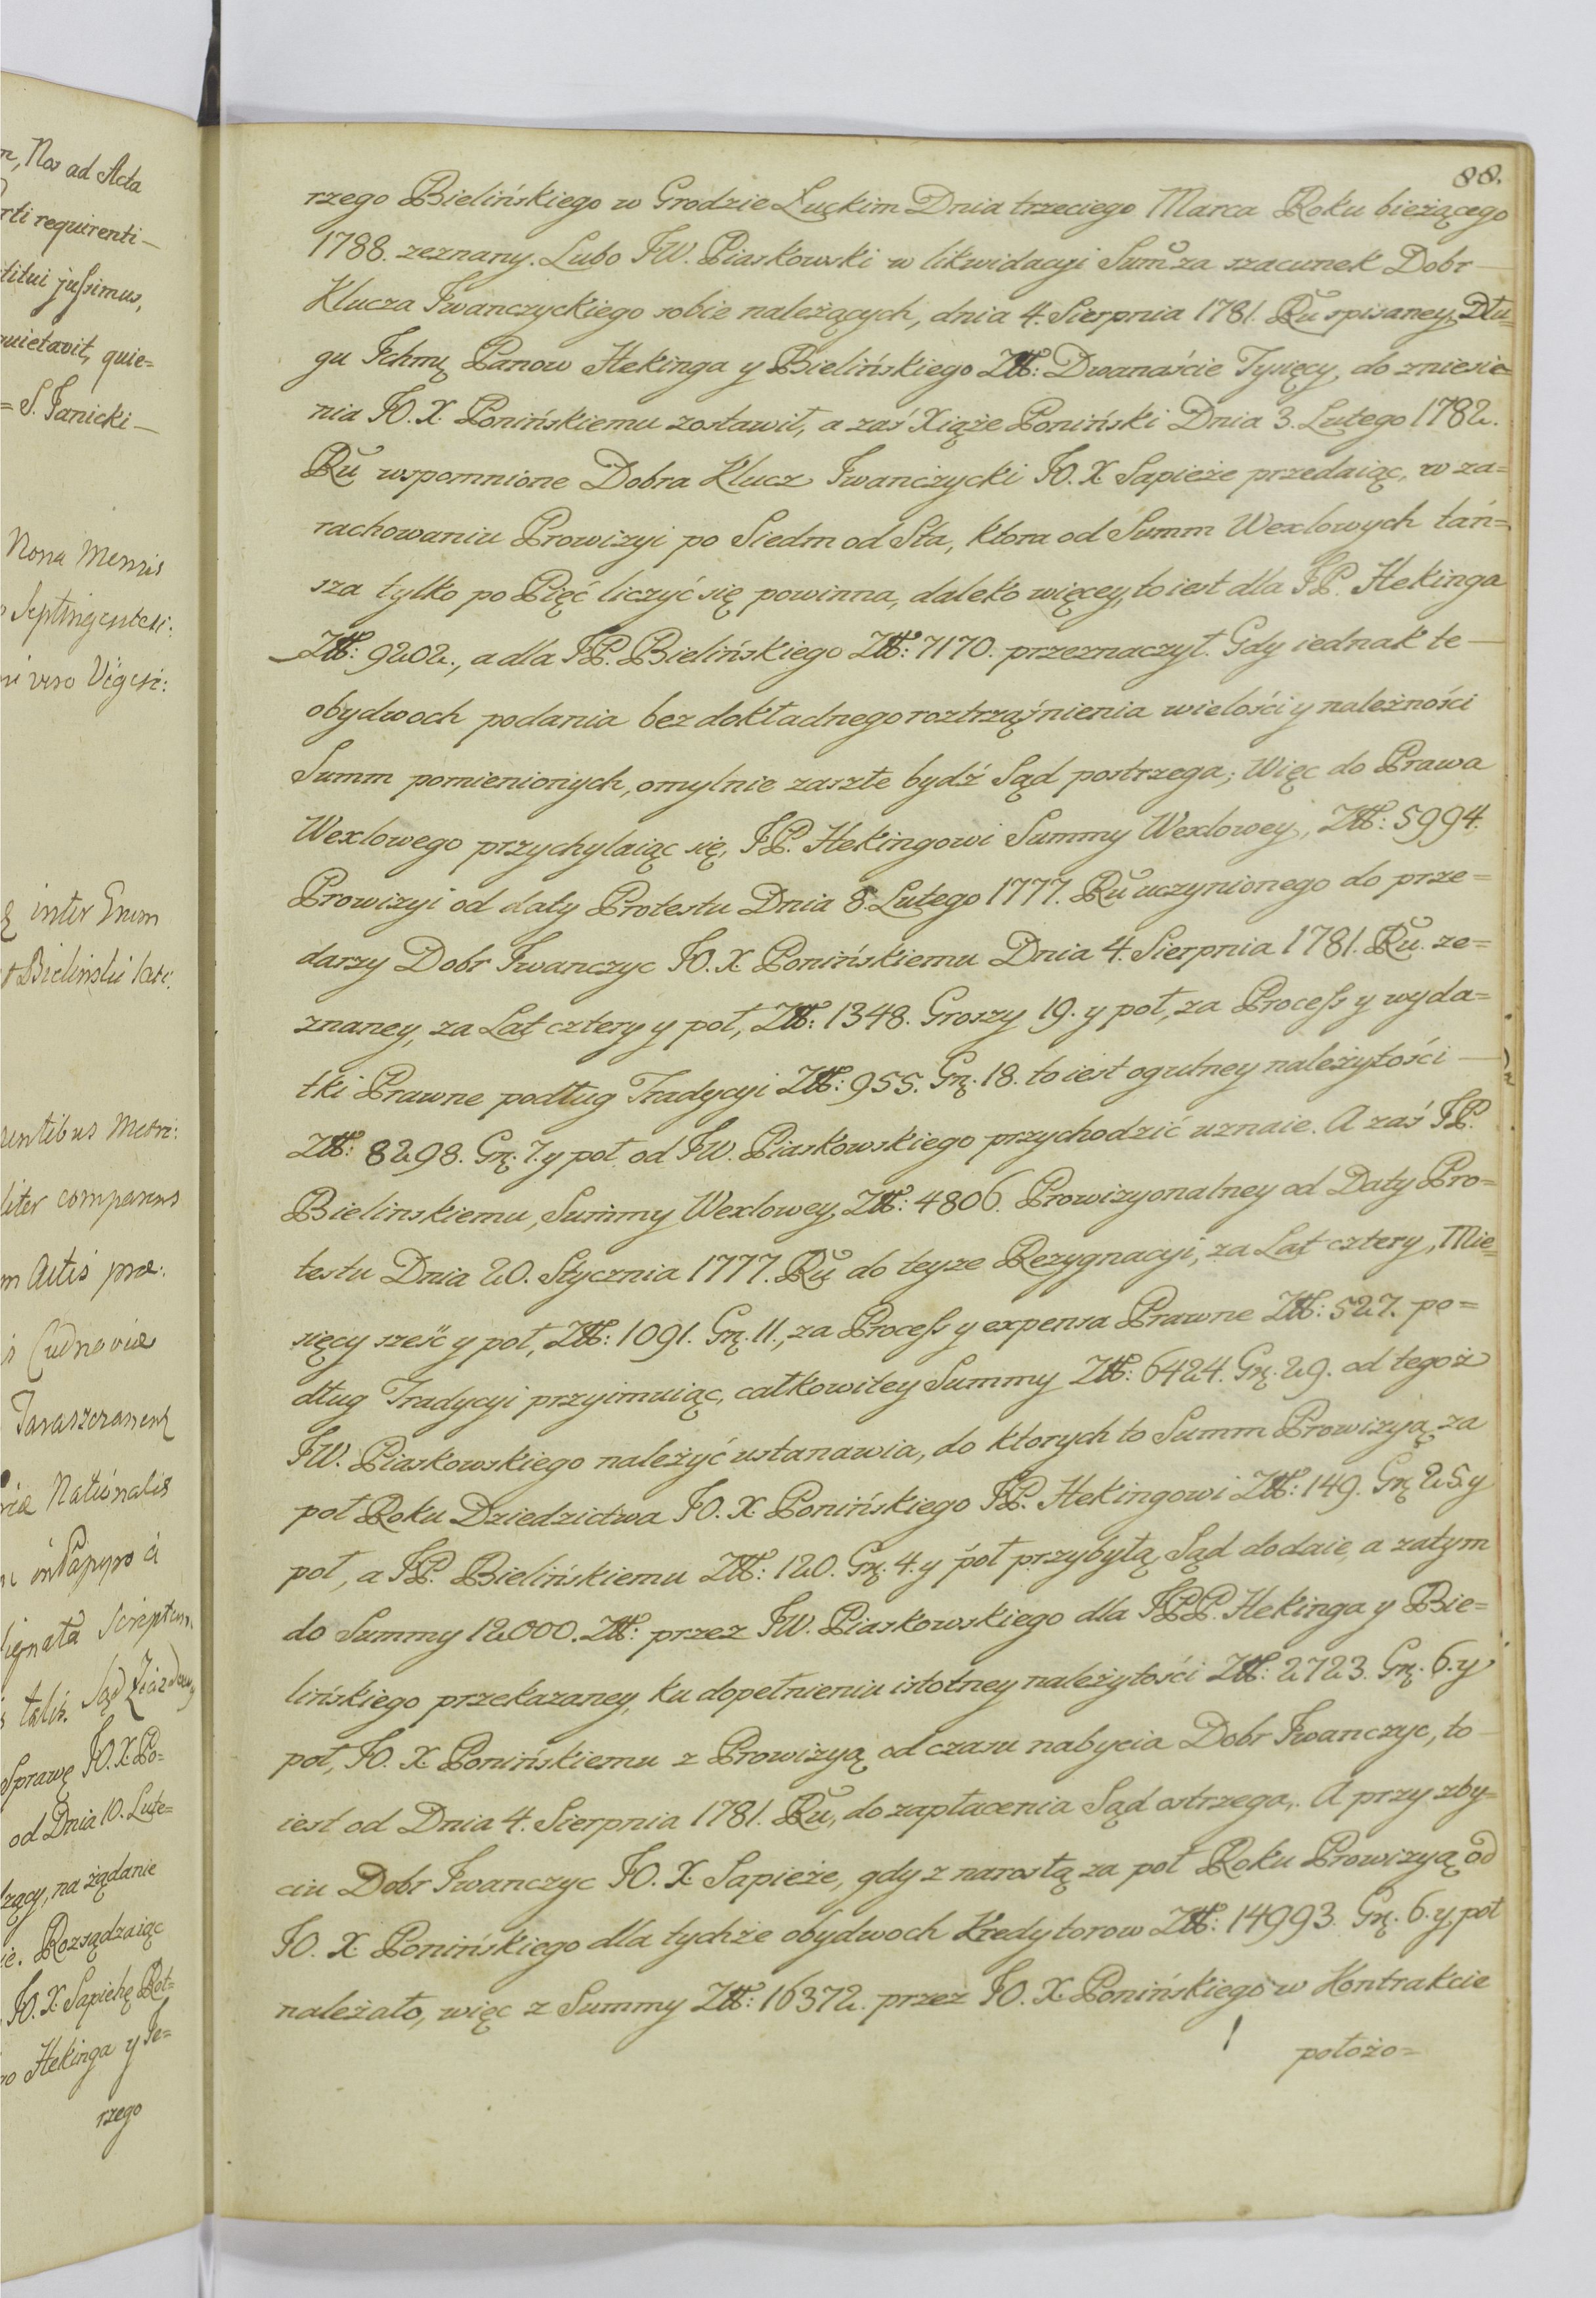 n, Nos ad Acta
rti requirenti —
titui jussimus,
quietavit, quie=
= S. Janicki —
Nona Mensis
Septingentesi:
ni vero Viges:
inter Gnum
t Bielinski late:
Metri:
liter comparens
m Actis præ:
Cudnoviæ
Nationalis
in Papyro à
ignata Scriptum
talis. Sąd Ziazdowy
Sprawę J.O.X. Po=
od Dnia 10. Lute=
, na żądanie
ie. Rozsądzaiąc
J.O.X. Sapiehę Pot=
ro Hekinga y Je=
rzego
88.
rzego Bielińskiego w Grodzie Łuckim Dnia trzeciego Marca Roku bieżącego
1788. zeznany. Lubo JW. Piaskowski w likwidacyi Sum̃ za szacunek Dobr —
Klucza Iwanczyckiego sobie należących, dnia 4. Sierpnia 1781. Ru spisaney, Dłu=
gu Ichmę Panow Hekinga y Bielińskiego Złł: Dwanaście Tysięcy, do zniesie=
nia J.O.X. Ponińskiemu zostawił, a zaś Xiąże Poniński Dnia 3. Lutego 1782.
Ru wspomnione Dobra Klucz Iwanczycki J.O.X Sapieże przedaiąc, w za=
rachowaniu Prowizyi po Siedm od Sta, ktora od Summ Wexlowych tań=
sza tylko po Pięć liczyć się powinna, daleko więcey, to iest dla JP. Hekinga
Złł: 9202., a dla JP. Bielińskiego Złł: 7170. przeznaczył. Gdy iednak te —
obydwoch podania bez dokładnego roztrząśnienia wielości y należności
Summ pomienionych, omylnie zaszłe bydź Sąd postrzega; Więc do Prawa
Wexlowego przychylaiąc się, JP. Hekingowi Summy Wexlowey, Złł: 5994.
Prowizyi od daty Protestu Dnia 8. Lutego 1777. Ru uczynionego do prze=
darzy Dobr Iwanczyc J.O.X. Ponińskiemu Dnia 4. Sierpnia 1781. Ru. ze=
znaney, za Lat cztery y poł, Złł: 1348. Groszy 19. y poł, za Process y wyda=
tki Prawne podług Tradycyi Złł: 955. Grę. 18. to iest ogulney należytości —
Złł: 8298. Grę. 7. y poł od JW. Piaskowskiego przychodzić uznaie. A zaś JP.
Bielinskiemu, Summy Wexlowey, Złł: 4806. Prowizyonalney od Daty Pro=
testu Dnia 20. Stycznia 1777. Ru do teyze Rezygnacyi, za Lat cztery, Mie=
sięcy sześć y poł, Złł: 1091. Grę. 11., za Process y expensa Prawne Złł: 527. po=
dług Tradycyi przyimuiąc, całkowitey Summy Złł: 6424. Grę. 29. od tegoż
JW. Piaskowskiego należyć ustanawia, do ktorych to Summ Prowizyą za
poł Roku Dziedzictwa J.O.X. Ponińskiego JP. Hekingowi Złł: 149. Grę 25. y
poł, a JP. Bielińskiemu Złł: 120. Grę. 4. y poł przybyłą, Sąd dodaie, a zatym
do Summy 12000. Złł: przez JW. Piaskowskiego dla JPP. Hekinga y Bie=
lińskiego przekazaney, ku dopełnieniu istotney należytości Złł: 2723. Grę. 6. y
poł, J.O.X. Ponińskiemu z Prowizyą od czasu nabycia Dobr Iwanczyc, to —
iest od Dnia 4. Sierpnia 1781. Ru, do zapłacenia Sąd ostrzega,. A przy zby=
ciu Dobr Iwanczyc J.O.X. Sapieże, gdy z narosłą za poł Roku Prowizyą od
J.O.X. Ponińskiego dla tychże obydwoch Kredytorow Złł: 14993. Grę. 6. y poł
należało, więc z Summy Złł: 16372. przez J.O.X. Ponińskiego w Kontrakcie
położo=